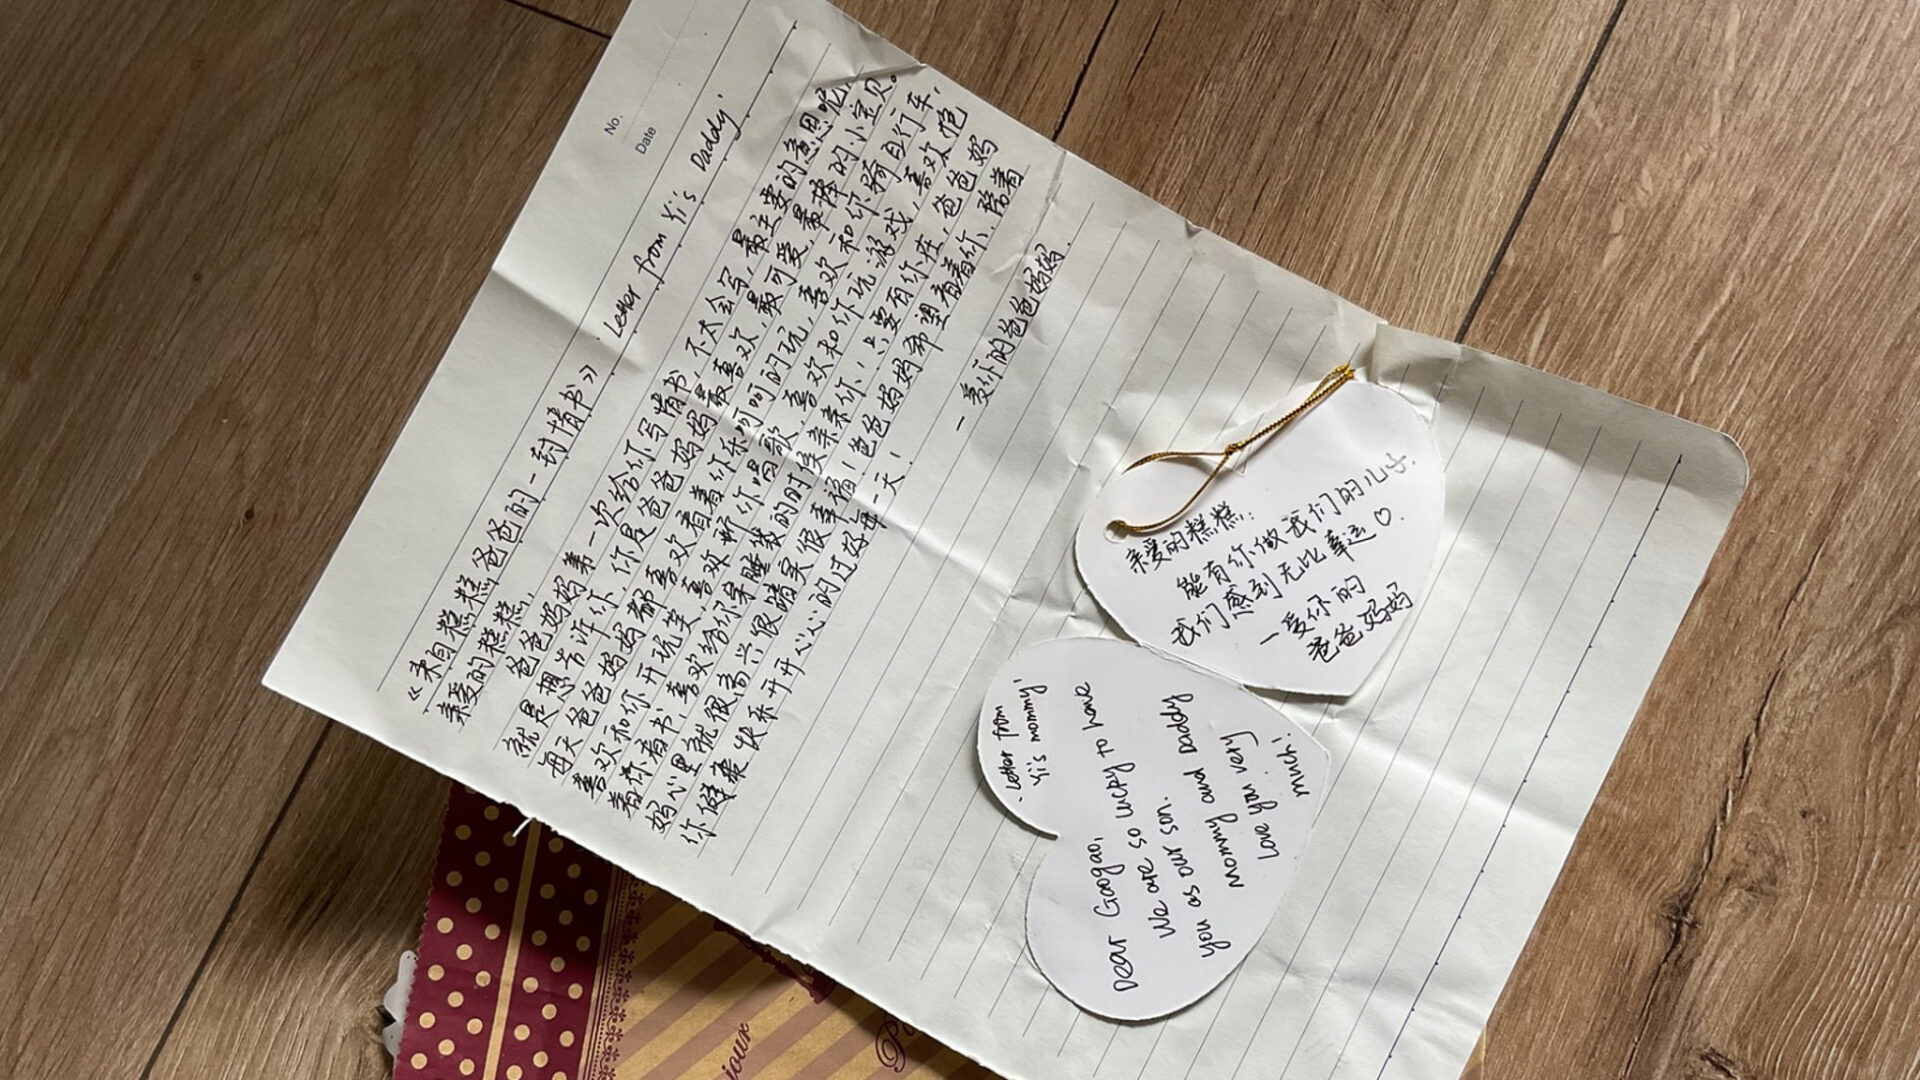 No.
Date
《来自糕糕爸爸的一封情书》 Letter from Yi's Daddy'
亲爱的糕糕,
爸爸妈妈第一次给你写情书,不太会写,最主要的意思呢,
就是想告诉你,你是爸爸妈妈最喜欢,最可爱,最棒的小宝贝。
每天爸爸妈妈都喜欢看着你乐呵呵的玩,喜欢和你骑自行车,
喜欢和你开玩笑,喜欢听你唱歌,喜欢和你玩游戏,喜欢抱
着你看书,喜欢给你穿睡袋的时候亲亲你!只要有你在,爸爸妈
妈心里就很高兴很踏实很幸福!爸爸妈妈希望看着你、陪着
你健康快乐开开心心的过好每一天!
—爱你的爸爸妈妈.
亲爱的糕糕:
能有你做我们的儿子.
我们感到无比幸运♡.
—爱你的
爸爸妈妈
Letter from
Yi's mommy'
Dear Gaogao,
We are so lucky to have
you as our son.
Mommy and Daddy
love you very
much!